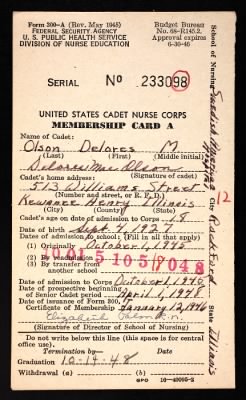 Form 300-A (Rev. May 1945)
FEDERAL SECURITY AGENCY
U. S. PUBLIC HEALTH SERVICE
DIVISION OF NURSE EDUCATION
Budget Bureau
No. 68-R145.2.
Approval expires
6-30-46
SERIAL No 233098
UNITED STATES CADET NURSE CORPS
MEMBERSHIP CARD A
Name of Cadet:
Olson Delores M
(Last) (First) (Middle initial)
Delores Mae Olson
Cadet's home address: (Signature of cadet)
513 Williams Street
(Number and street, or R. F. D.)
Kewanee Henry Illinois
(City) (County) (State)
Cadet's age on date of admission to Corps 18
Date of birth Sept. 4, 1927
Dates of admission to school: (Fill in all that apply)
(1) Originally October 1, 1945
(2) By readmission
(3) By transfer from another school
Date of admission to Corps October 1, 1945
Date of beginning of Senior Cadet period April 1, 1948
Date of issuance of Form 300, Certificate of Membership January 12, 1946
Elizabeth
(Signature of Director of School of Nursing)
Do not write below this line (this space is for central office use).
Termination by— Date
Graduation 10-14-48
Withdrawal (a) (b)
GPO 16-43095-2
School of Nursing Swedish American Hospital
City Rockford
State Illinois
12